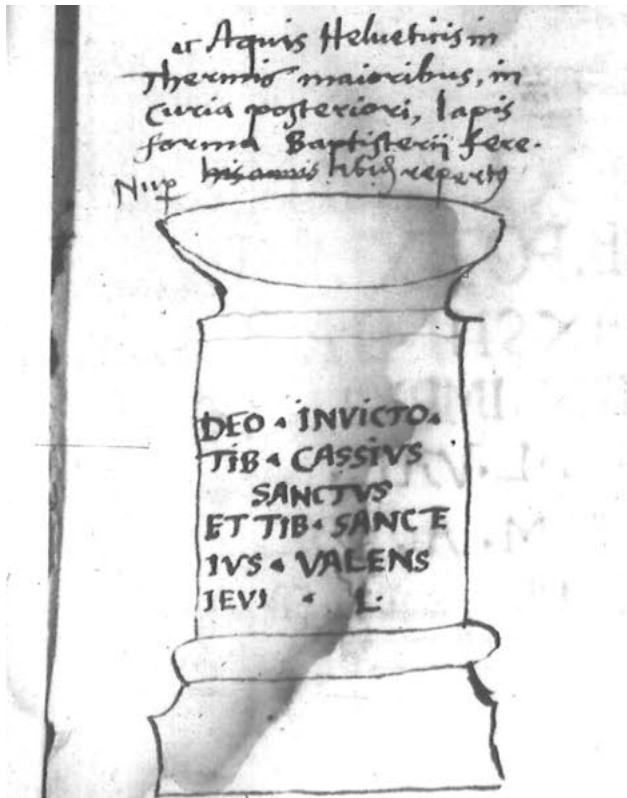 Aquis Helueticis in
Thermis maioribus, in
Curia posteriori, lapis
forma Baptisterij fere.
repertus
Nup
DEO · INVICTO ·
TIB · CASSIVS
SANCTVS
ET TIB · SANCTE
IVS · VALENS
IEVI · L ·